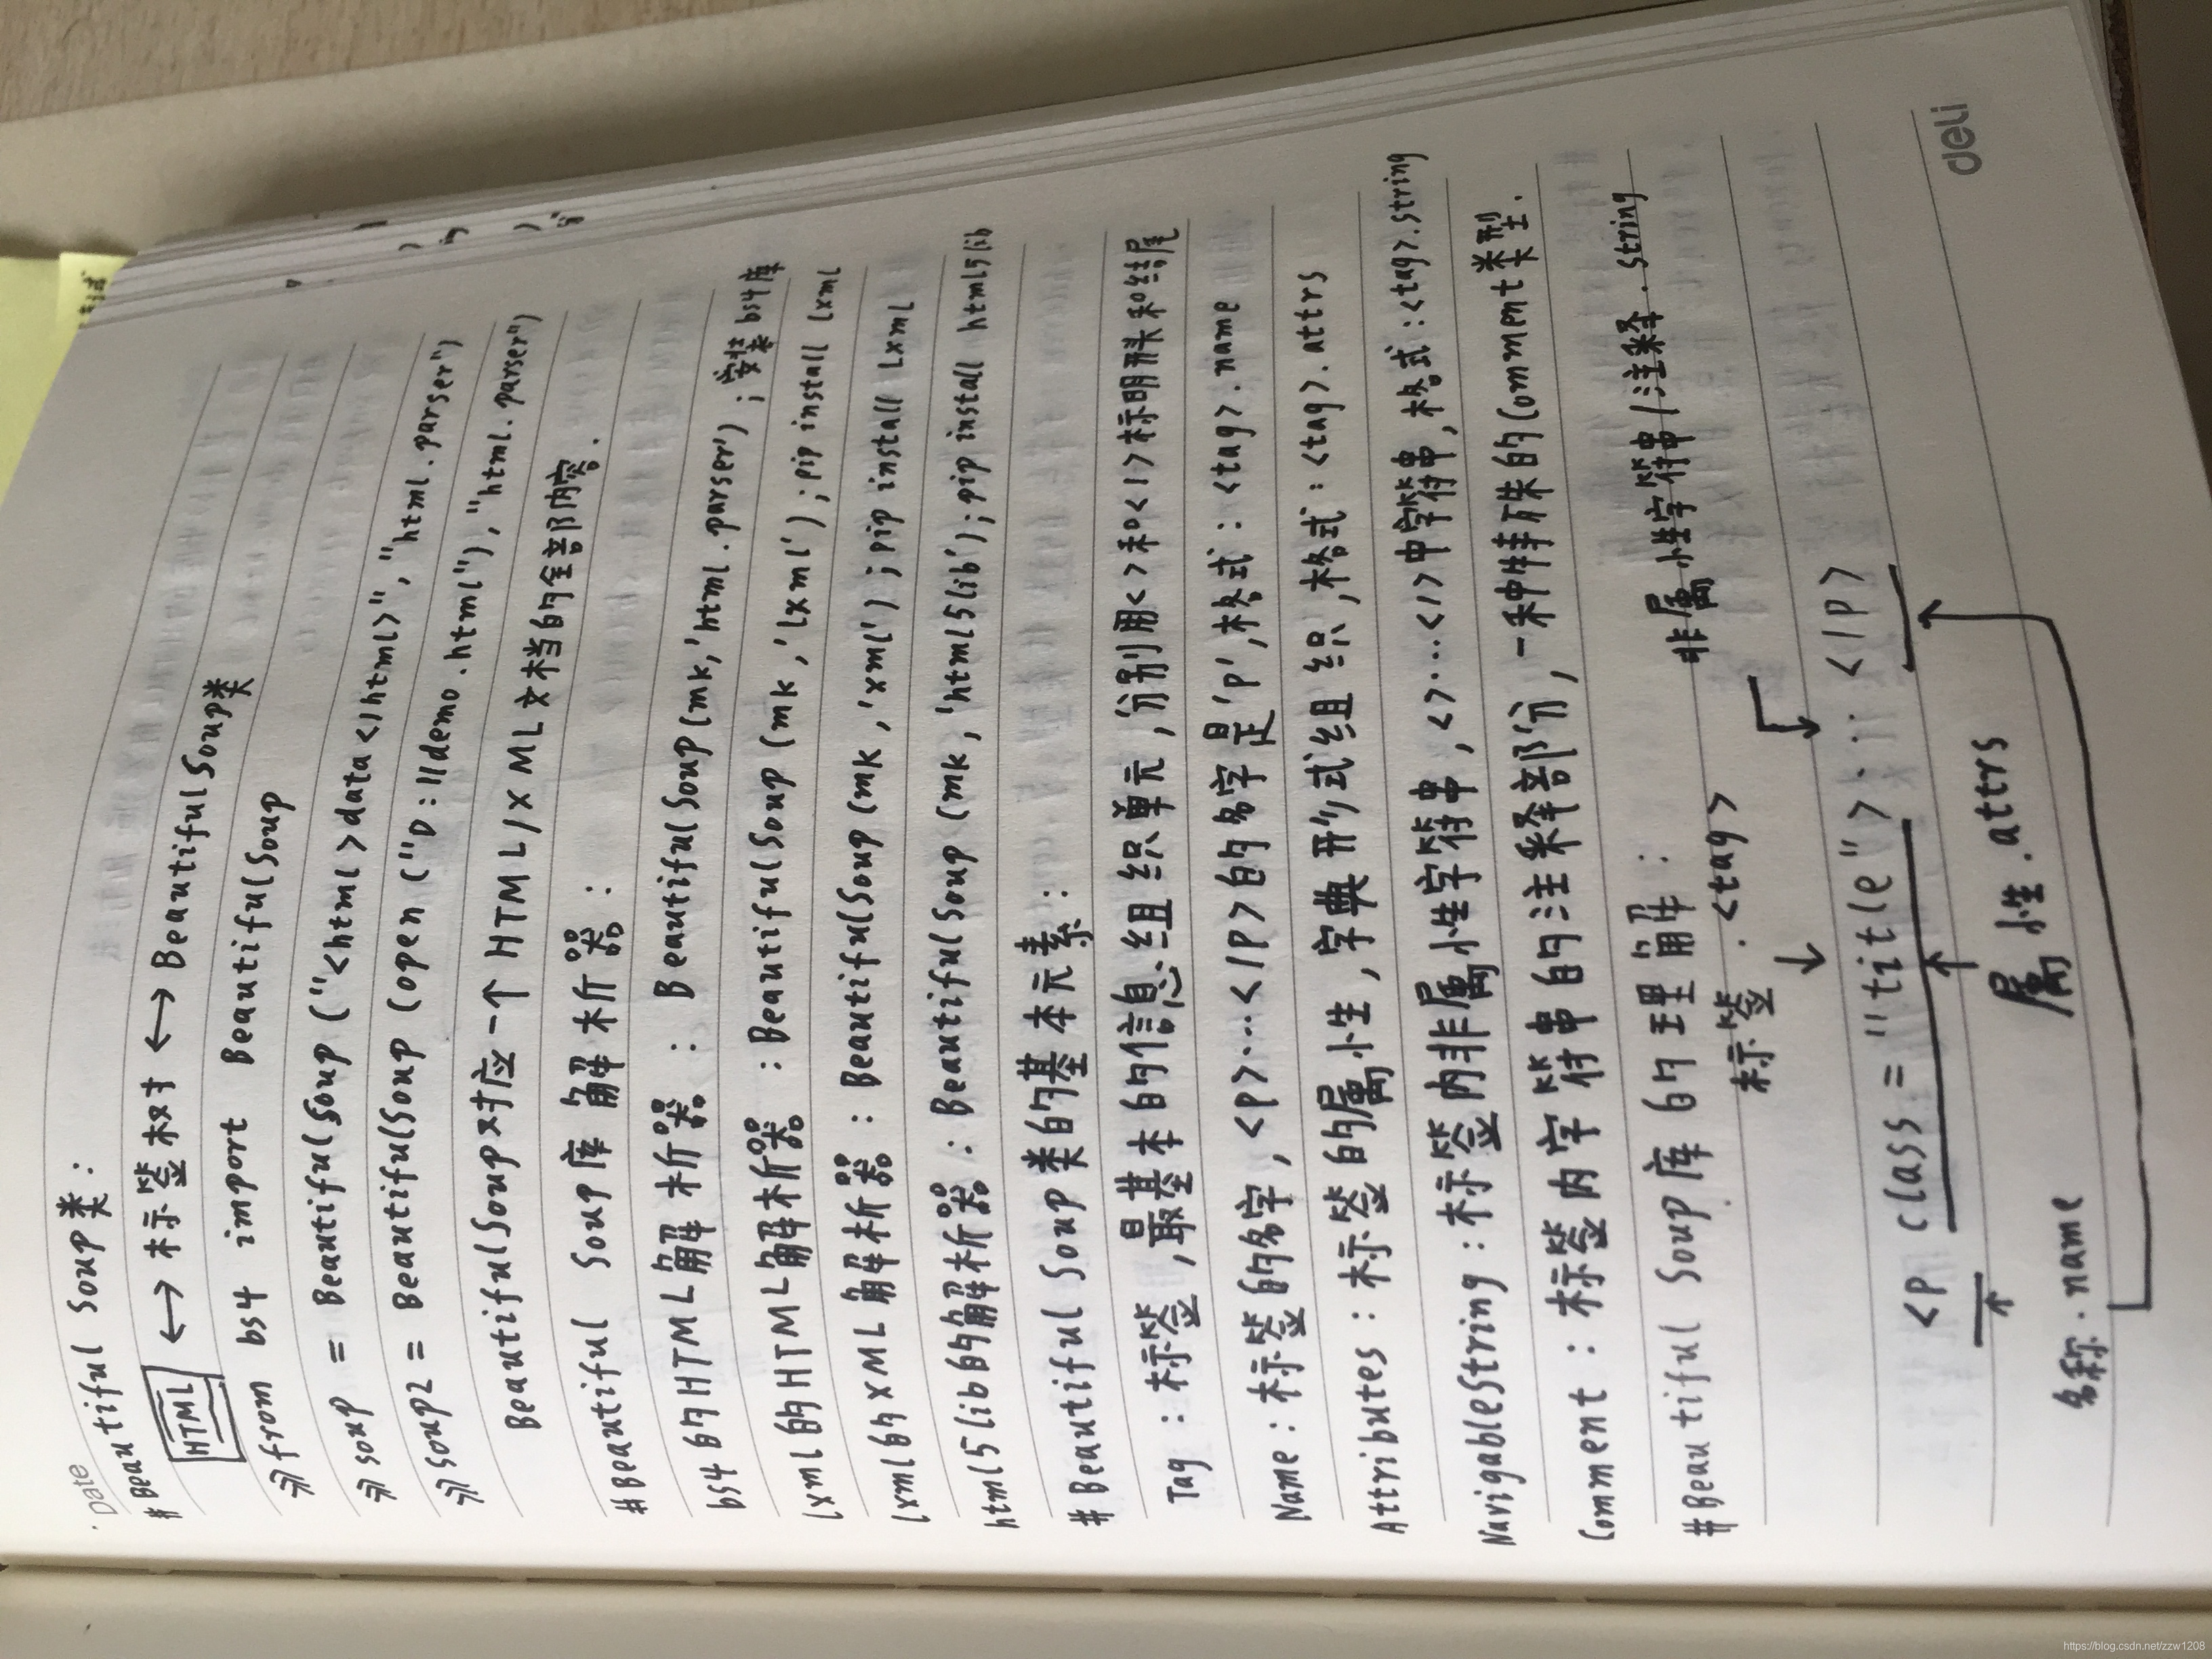 Date
# Beautiful Soup类:
HTML <-> 标签树 <-> BeautifulSoup类
>>> from bs4 import BeautifulSoup
>>> soup = BeautifulSoup("<html>data</html>","html.parser")
>>> soup2 = BeautifulSoup(open("D://demo.html"),"html.parser")
BeautifulSoup对应一个HTML/XML文档的全部内容.
# Beautiful Soup库解析器:
bs4的HTML解析器: BeautifulSoup(mk,'html.parser'); 安装bs4库
lxml的HTML解析器: BeautifulSoup(mk,'lxml'); pip install lxml
lxml的XML解析器: BeautifulSoup(mk,'xml'); pip install lxml
html5lib的解析器: BeautifulSoup(mk,'html5lib'); pip install html5lib
# Beautiful Soup类的基本元素:
Tag: 标签,最基本的信息组织单元,分别用<>和</>标明开头和结尾
Name: 标签的名字, <p>...</p>的名字是'p',格式: <tag>.name
Attributes: 标签的属性,字典形式组织,格式: <tag>.attrs
NavigableString: 标签内非属性字符串, <>...</>中字符串,格式: <tag>.string
Comment: 标签内字符串的注释部分,一种特殊的Comment类型.
# Beautiful Soup库的理解:
标签.<tag> 非属性字符串/注释.string
<p class="title">...</p>
名称.name 属性.attrs
deli
https://blog.csdn.net/zzw1208